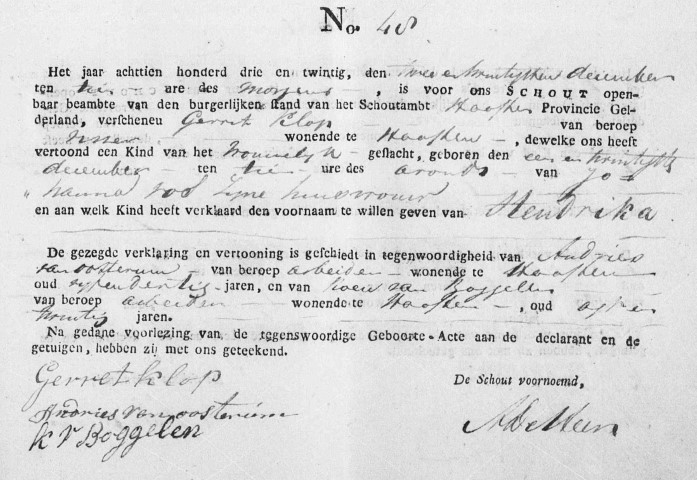 No. 48
Het jaar achttien honderd drie en twintig, den twee en twintigsten december
ten tien ure des morgens —, is voor ons SCHOUT open-
baar beambte van den burgerlijken stand van het Schoutambt Haaften Provincie Gel-
derland, verscheneu Gerret Klop van beroep
wonende te Haaften —, dewelke ons heeft
vertoond een Kind van het Vrouwelyk — geslacht, geboren den een en twintigsten
december — ten ure des avonds — van Jo=
„hanna zyne huisvrouw
en aan welk Kind heeft verklaard den voornaam te willen geven van Hendrika
De gezegde verklaring en vertooning is geschiedt in tegenwoordigheid van Andries
van oosterum van beroep arbeider — wonende te Haaften
oud jaren, en van Koen van Boggelen
van beroep arbeider — wonende te Haaften —, oud agt en
twintig jaren.
Na gedane voorlezing van de tegenswoordige Geboorte-Acte aan de declarant en de
getuigen, hebben zij met ons geteekend.
Gerret klop
De Schout voornoemd,
Andries van oosterúm
k v Boggelen